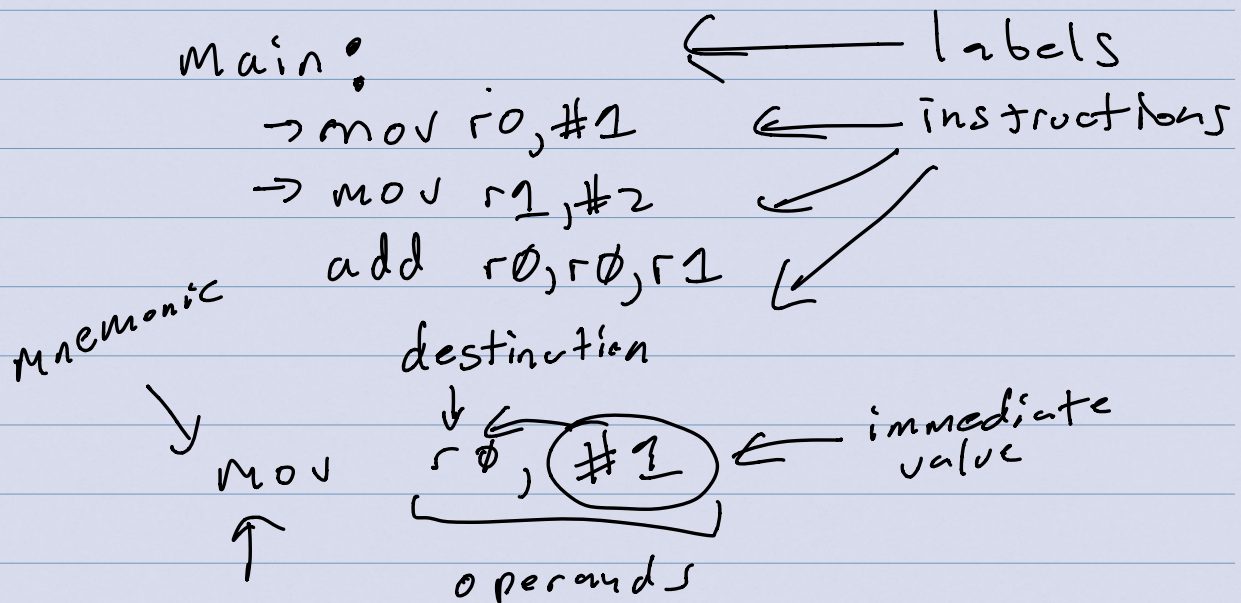 main: labels
mov r0,#1 instructions
mov r1,#2
add rø,rø,r1
mnemonic
destination
mov rø, #1 immediate
value
operands